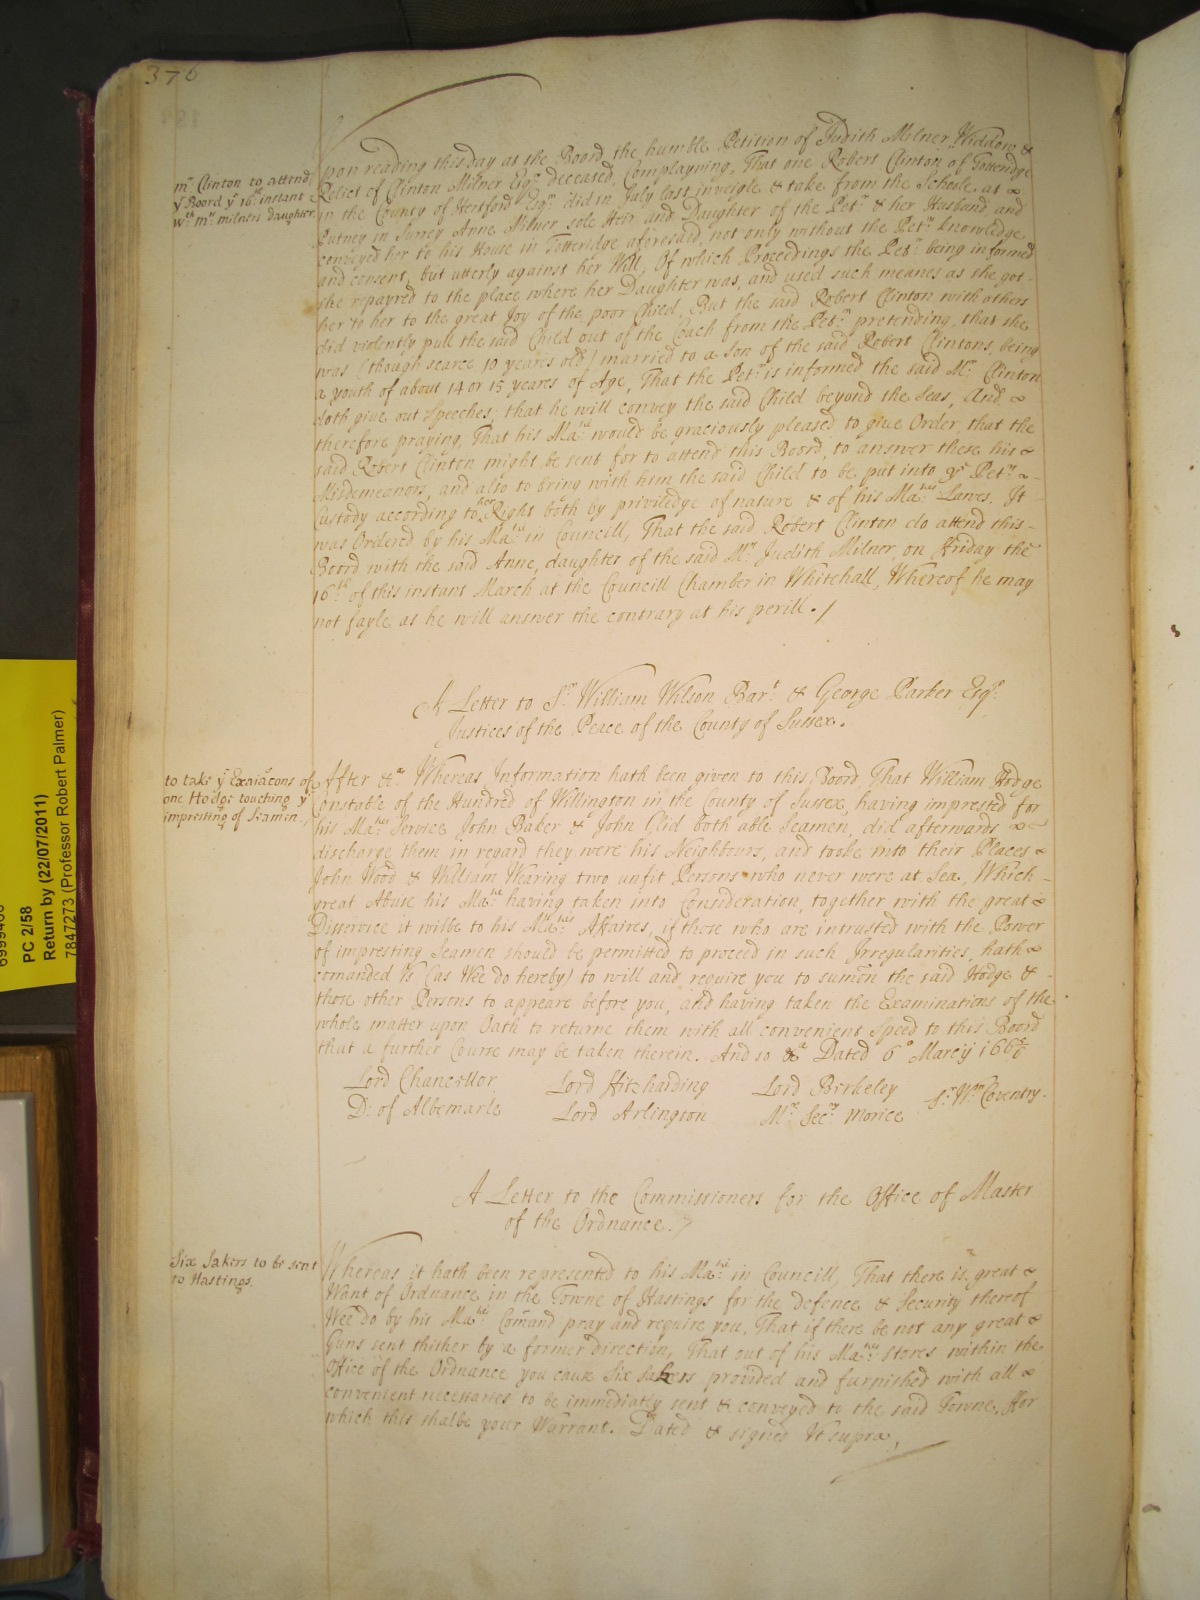 376
mr Clinton to attend
ye Board ye 16th instant
wth mrs milners daughter.
Upon reading this day at the Board the humble Petition of Judith Milner Widdow &
Relict of Clinton Milner Esqr deceased, Complayning, That one Robert Clinton of Totteridge
in the County of Hertford Esqr did in July last inveigle & take from the Schole at
Putney in Surrey Anne Milner sole Heir and Daughter of the Petr & her Husband and
conveyed her to his House in Totteridge aforesaid, not only without the Petrs knowledge
and consent, but utterly against her Will, Of which Proceedings the Petr being informed
she repayred to the place where her Daughter was, and used such meanes as she got
her to her to the great Joy of the poor Child, But the said Robert Clinton with others
did violently pull the said Child out of the Coach from the Petr pretending, that she
was (though scarce 10 years old) married to a Son of the said Robert Clintons, being
a youth of about 14 or 15 yeares of Age, That the Petr is informed the said Mr Clinton
doth give out Speeches, that he will convey the said Child beyond the Seas, And
therefore praying, That his Matie would be graciously pleased to give Order, that the
said Robert Clinton might be sent for to attend this Board, to answer these his
Misdemeanors, and also to bring with him the said Child to be put into ye Petrs
Custody according to her Right both by priviledge of nature & of his Maties Lawes. It
was Ordered by his Matie in Councill, That the said Robert Clinton do attend this
Board with the said Anne, daughter of the said Mrs Judith Milner, on Friday the
16th of this instant March at the Councill Chamber in Whitehall, Whereof he may
not fayle as he will answer the contrary at his perill. /
A Letter to Sr William Wilson Bart & George Parker Esqr
Justices of the Peace of the County of Sussex.
to take ye Exaiacons of
one Hodge touching ye
impresting of Seamen.
After &ca Whereas Information hath been given to this Board, That William Hodge
Constable of the Hundred of Willington in the County of Sussex, having imprested for
his Maties Service John Baker & John Glid both able Seamen, did afterwards
discharge them in regard they were his Neighbours, and tooke into their Places
John Wood & William Wearing two unfit Persons who never were at Sea, Which
great Abuse his Matie having taken into Consideration, together with the great
Disservice it wilbe to his Maties Affaires, if those who are intrusted with the Power
of impresting Seamen should be permitted to proceed in such Irregularities, hath
comanded Vs (as Wee do hereby) to will and require you to sumon the said Hodge &
those other Persons to appeare before you, and having taken the Examinations of the
whole matter upon Oath to returne them with all convenient Speed to this Board
that a further Course may be taken therein. And so &ca Dated 6o Marcij 1665/6
Lord Chancellor Lord Fitzharding Lord Berkeley Sr Wm Coventry.
D: of Albemarle Lord Arlington Mr Secry Morice
A Letter to the Commissioners for the Office of Master
of the Ordnance.
Six Sakers to be sent
to Hastings.
Whereas it hath been represented to his Matie in Councill, That there is great
Want of Ordnance in the Towne of Hastings for the defence & Security thereof
Wee do by his Maties Comand pray and require you, That if there be not any great
Guns sent thither by a former direction, That out of his Maties Stores within the
Office of the Ordnance you cause Six Sakers provided and furnished with all
convenient necessaries to be immediatly sent & conveyed to the said Towne, For
which this shalbe your Warrant. Dated & signed Vt supra,
PC 2/58
Return by (22/07/2011)
7847273 (Professor Robert Palmer)